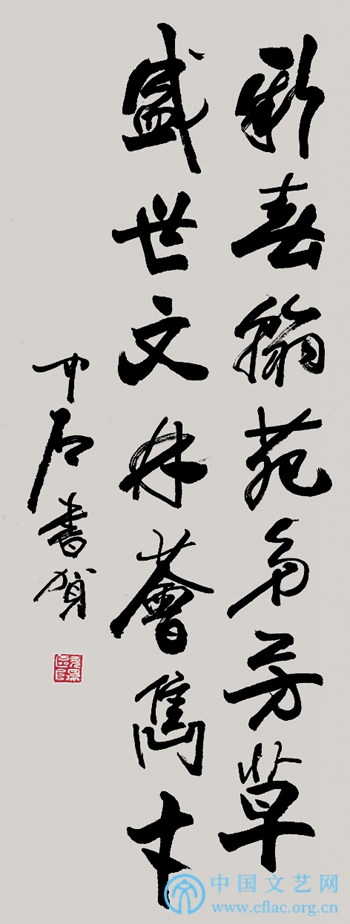 新春翰苑多芳草
盛世文林薈雋才
中石書賀
中国文艺网
www.cflac.org.cn